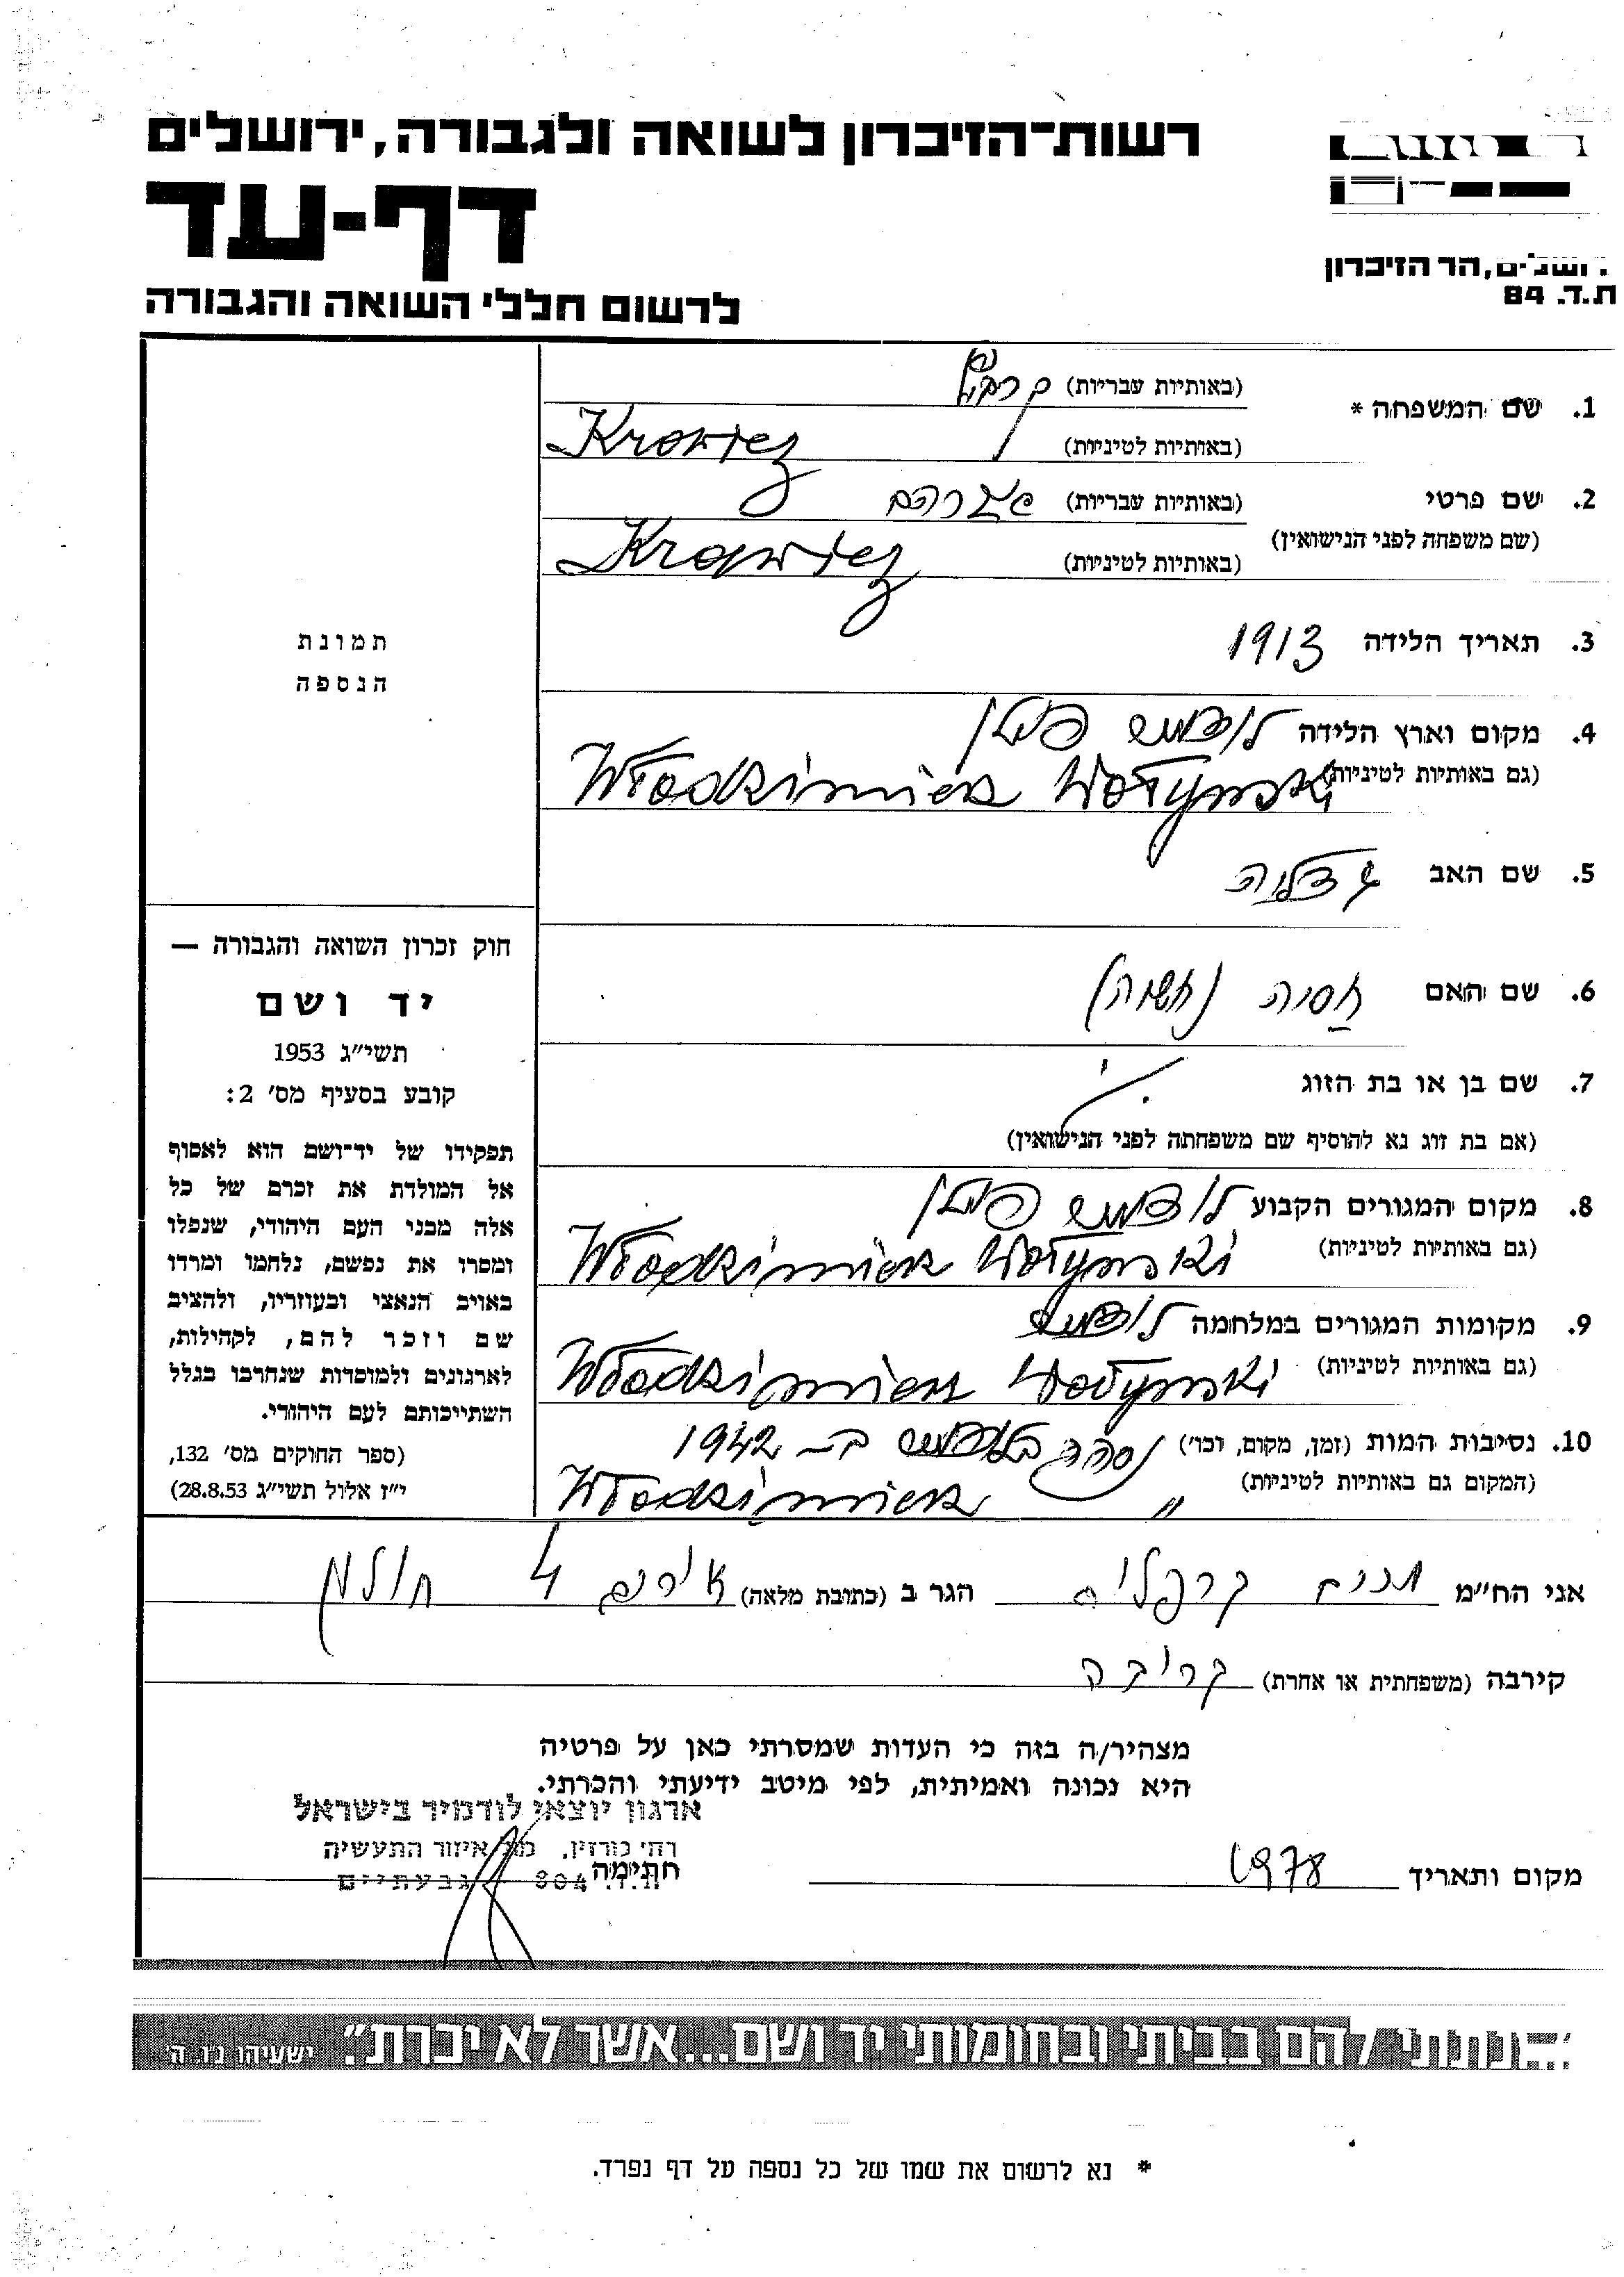 רשות־הזיכרון לשואה ולגבורה, ירושלים
דף-עד
לרשום חללי השואה והגבורה
הר הזיכרון
ת.ד. 84
1. שם המשפחה *
(באותיות עבריות)
(באותיות לטיניות) Krawiez
2. שם פרטי
(באותיות עבריות) אברהם
(שם משפחה לפני הנישואין)
(באותיות לטיניות) Krawiez
3. תאריך הלידה 1913
4. מקום וארץ הלידה לודמיר פולין
(גם באותיות לטיניות) Włodzimierz Wołynski
5. שם האב גדליה
6. שם האם חסיה
7. שם בן או בת הזוג
(אם בת זוג נא להוסיף שם משפחתה לפני הנישואין)
8. מקום המגורים הקבוע לודמיר פולין
(גם באותיות לטיניות) Włodzimierz Wołynski
9. מקומות המגורים במלחמה לודמיר
(גם באותיות לטיניות) Włodzimierz Wołynski
10. נסיבות המות (זמן, מקום, וכו') נספה בלודמיר ב- 1942
(המקום גם באותיות לטיניות) Włodzimierz "
תמונת
הנספה
חוק זכרון השואה והגבורה —
יד ושם
תשי"ג 1953
קובע בסעיף מס' 2:
תפקידו של יד־ושם הוא לאסוף
אל המולדת את זכרם של כל
אלה מבני העם היהודי, שנפלו
ומסרו את נפשם, נלחמו ומרדו
באויב הנאצי ובעוזריו, ולהציב
שם וזכר להם, לקהילות,
לארגונים ולמוסדות שנחרבו בגלל
השתייכותם לעם היהודי.
(ספר החוקים מס' 132,
י"ז אלול תשי"ג 28.8.53)
אני הח"מ הגר ב (כתובת מלאה) 4 חולון
קירבה (משפחתית או אחרת) קרובה
מצהיר/ה בזה כי העדות שמסרתי כאן על פרטיה
היא נכונה ואמיתית, לפי מיטב ידיעתי והכרתי.
ארגון יוצאי לודמיר בישראל
רח' כורזין, מול איזור התעשיה
ת.ד. 804 גבעתיים
מקום ותאריך 1978 חתימה
ונתתי להם בביתי ובחומותי יד ושם...אשר לא יכרת". ישעיהו נ"ו ה'
* נא לרשום את שמו של כל נספה על דף נפרד.